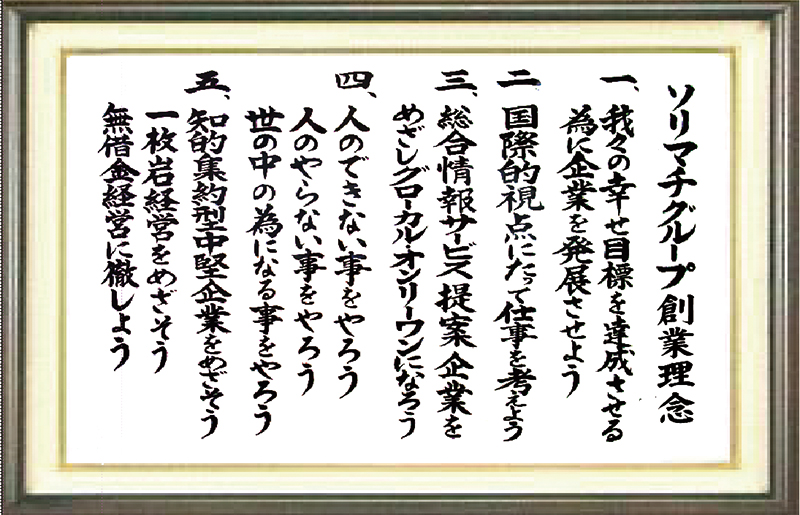 ソリマチグループ創業理念
一、我々の幸せ目標を達成させる
為に企業を発展させよう
二、国際的視点にたって仕事を考えよう
三、総合情報サービス提案企業を
めざしグローカル・オンリーワンになろう
四、人のできない事をやろう
人のやらない事をやろう
世の中の為になる事をやろう
五、知的集約型中堅企業をめざそう
一枚岩経営をめざそう
無借金経営に徹しよう